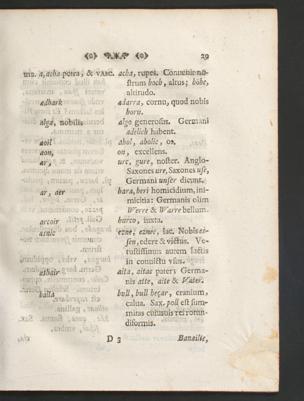 29
nia. a, acha potea, & vasc. acha, rupes. Convenit no-
strum hoch, altus; höhe,
altitudo.
adhark adarra, cornu, quod nobis
horn.
alga, nobilis. algo generosin. Germani
adelich habent.
aoil ahol, abolic, os.
aon, on, excellens.
ar, ure, gure, noster. Anglo-
Saxones ure, Saxones use,
Germani unser dicunt.
ar, aer hara, beri homicidium, ini-
micitia: Germanis olim
Werre & Warre bellum.
arcoir barco, iuxta.
asnic ezne, eznec, lac. Nobis es-
sen, edere & victus. Ve-
rustissimus autem lactis
in convictu usus.
athair aita, aitas pater: Germa-
nis atte, aite & Vater.
balla bull, bull beçar, cranium,
calua. Sax. poll est sum-
mitas cuiusuis rei rotun-
diformis.
D 3 Banailte,